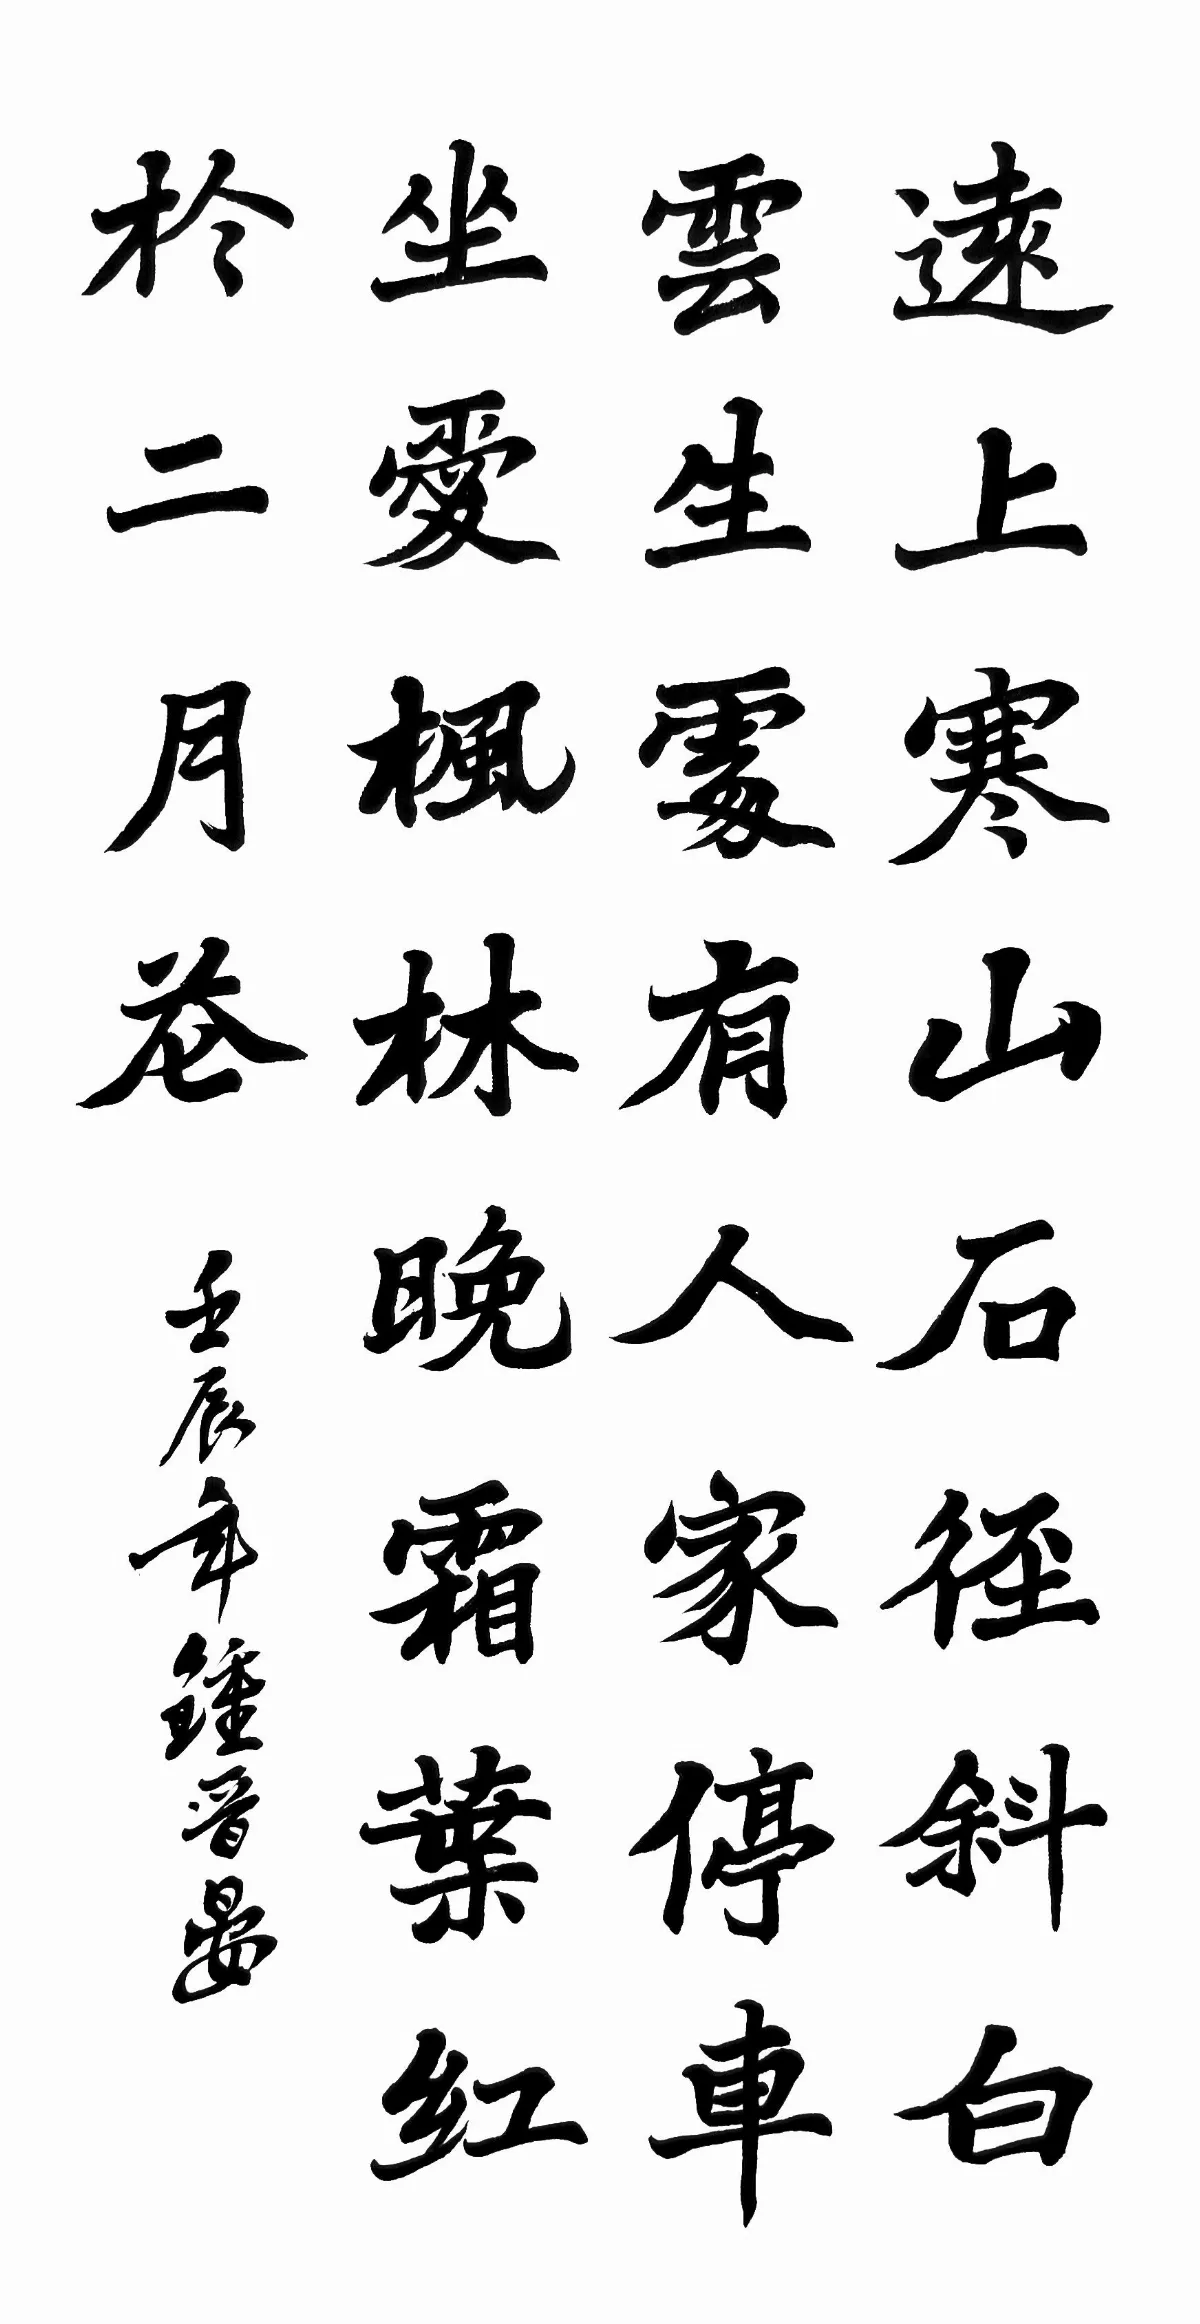 遠上寒山石径斜白
雲生處有人家停車
坐愛楓林晚霜葉红
於二月花
壬辰年鍾晋晏